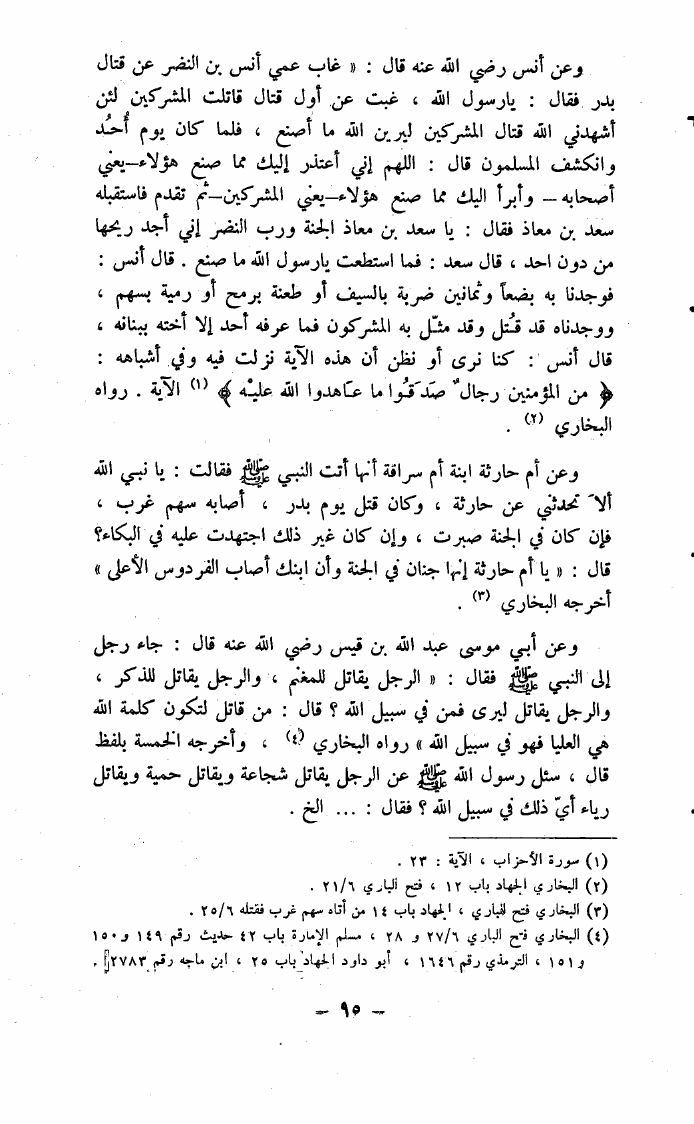 وعن أنس رضي الله عنه قال : « غاب عمي أنس بن النضر عن قتال
بدر فقال : يارسول الله ، غبت عن أول قتال قاتلت المشركين لئن
أشهدني الله قتال المشركين ليرين الله ما أصنع ، فلما كان يوم أُحُد
وانكشف المسلمون قال : اللهم إني أعتذر إليك مما صنع هؤلاء—يعني
أصحابه — وأبرأ اليك مما صنع هؤلاء—يعني المشركين—ثم تقدم فاستقبله
سعد بن معاذ فقال : يا سعد بن معاذ الجنة ورب النضر إني أجد ريحها
من دون احد ، قال سعد : فما استطعت يارسول الله ما صنع . قال أنس :
فوجدنا به بضعاً وثمانين ضربة بالسيف أو طعنة برمح أو رمية بسهم ،
ووجدناه قد قُتل وقد مثّل به المشركون فما عرفه أحد إلا أخته ببنانه ،
قال أنس : كنا نرى أو نظن أن هذه الآية نزلت فيه وفي أشباهه :
﴿ من المؤمنين رجالٌ صَدَقُوا ما عَاهدوا الله عليْه ﴾ (١) الآية . رواه
البخاري (٢) .
وعن أم حارثة ابنة أم سراقة أنها أتت النبي ﷺ فقالت : يا نبي الله
ألاَ تحدثني عن حارثة ، وكان قتل يوم بدر ، أصابه سهم غرب ،
فإن كان في الجنة صبرت ، وإن كان غير ذلك اجتهدت عليه في البكاء؟
قال : « يا أم حارثة إنها جنان في الجنة وأن ابنك أصاب الفردوس الأعلى »
أخرجه البخاري (٣) .
وعن أبي موسى عبد الله بن قيس رضي الله عنه قال : جاء رجل
إلى النبي ﷺ فقال : « الرجل يقاتل للمغنم ، والرجل يقاتل للذكر ،
والرجل يقاتل ليرى فمن في سبيل الله ؟ قال : من قاتل لتكون كلمة الله
هي العليا فهو في سبيل الله » رواه البخاري (٤) ، وأخرجه الخمسة بلفظ
قال ، سئل رسول الله ﷺ عن الرجل يقاتل شجاعة ويقاتل حمية ويقاتل
رياء أيّ ذلك في سبيل الله ؟ فقال : ... الخ .
(١) سورة الأحزاب ، الآية : ٢٣ .
(٢) البخاري الجهاد باب ١٢ ، فتح الباري ٢١/٦ .
(٣) البخاري فتح الباري ، الجهاد باب ١٤ من أتاه سهم غرب فقتله ٢٥/٦ .
(٤) البخاري فتح الباري ٢٧/٦ و ٢٨ ، مسلم الإمارة باب ٤٢ حديث رقم ١٤٩ و١٥٠
و ١٥١ ، الترمذي رقم ١٦٤٦ ، أبو داود الجهاد باب ٢٥ ، ابن ماجه رقم ٢٧٨٣ .
— ٩٥ —